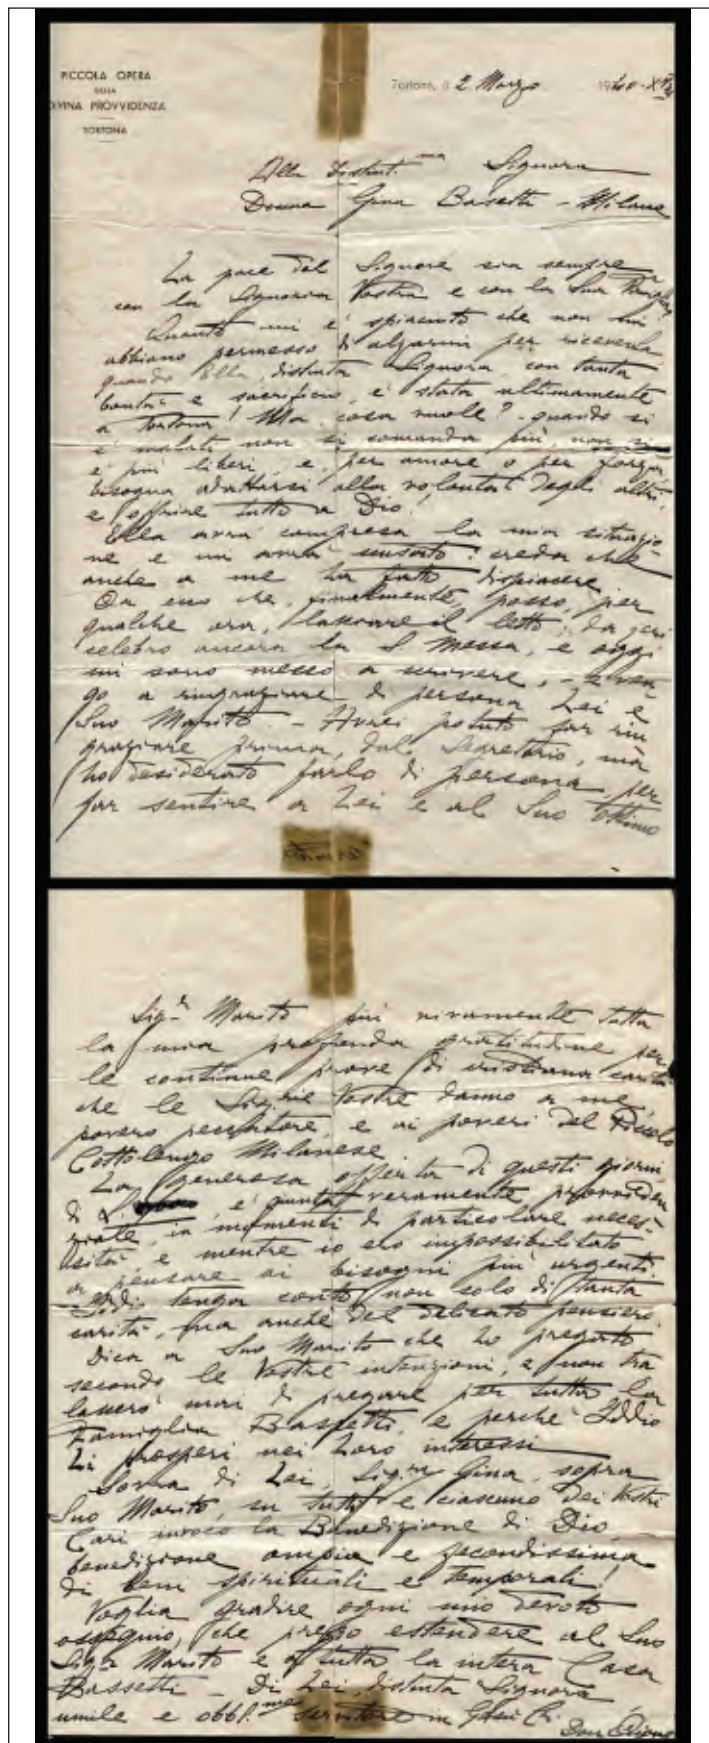 PICCOLA OPERA
DELLA
DIVINA PROVVIDENZA
TORTONA
Tortona, il 2 Marzo 1940-XVIII
Alla Distint.ma Signora
Donna Gina Bassetti - Milano
La pace del Signore sia sempre
con la Signoria Vostra e con la Sua
Quanto mi è spiaciuto che non mi
abbiano permesso di alzarmi per riceverla
quando Ella, distinta Signora, con tanta
bontà e sacrificio, è stata ultimamente
a Tortona! Ma, cosa vuole? quando si
è malati non si comanda più, non si
è più liberi, e, per amore o per forza,
bisogna adattarsi alla volontà degli altri,
e offrire tutto a Dio!
Ella avrà compresa la mia situazio
ne e mi avrà scusato: creda che
anche a me ha fatto dispiacere.
Ora ecco che, finalmente, posso, per
qualche ora, lasciare il letto; da jeri
celebro ancora la S. Messa, e oggi
mi sono messo a scrivere, - e ven
go a ringraziare di persona Lei e
Suo Marito. - Avrei potuto far rin
graziare prima, dal Segretario, ma
ho desiderato farlo di persona, per
far sentire a Lei e al Suo ottimo
Sig.r Marito più vivamente tutta
la mia profonda gratitudine per
le continue prove di cristiana carità
che le Sig.rie Vostre danno a me,
povero peccatore, e ai poveri del Piccolo
Cottolengo Milanese.
La generosa offerta di questi giorni,
di L. , è giunta veramente provviden
ziale, in momenti di particolare neces-
sità e mentre io ero impossibilitato
a pensare ai bisogni più urgenti.
Iddio tenga conto non solo di tanta
carità, ma anche del delicato pensiero.
Dica a Suo Marito che ho pregato
secondo le Vostre intenzioni, e non tra
lascerò mai di pregare per tutta la
Famiglia Bassetti, e perchè Iddio
Li prosperi nei Loro interessi
Sovra di Lei, Sig.ra Gina, sopra
Suo Marito, su tutti e ciascuno dei Vostri
Cari invoco la Benedizione di Dio,
benedizione ampia e fecondissima
di beni spirituali e temporali!
Voglia gradire ogni mio devoto
ossequio, che prego estendere al Suo
Sig.r Marito e a tutta la intera Casa
Bassetti - Di Lei, distinta Signora
umile e obbl.mo servitore in Gesù Cr.
Don Orione